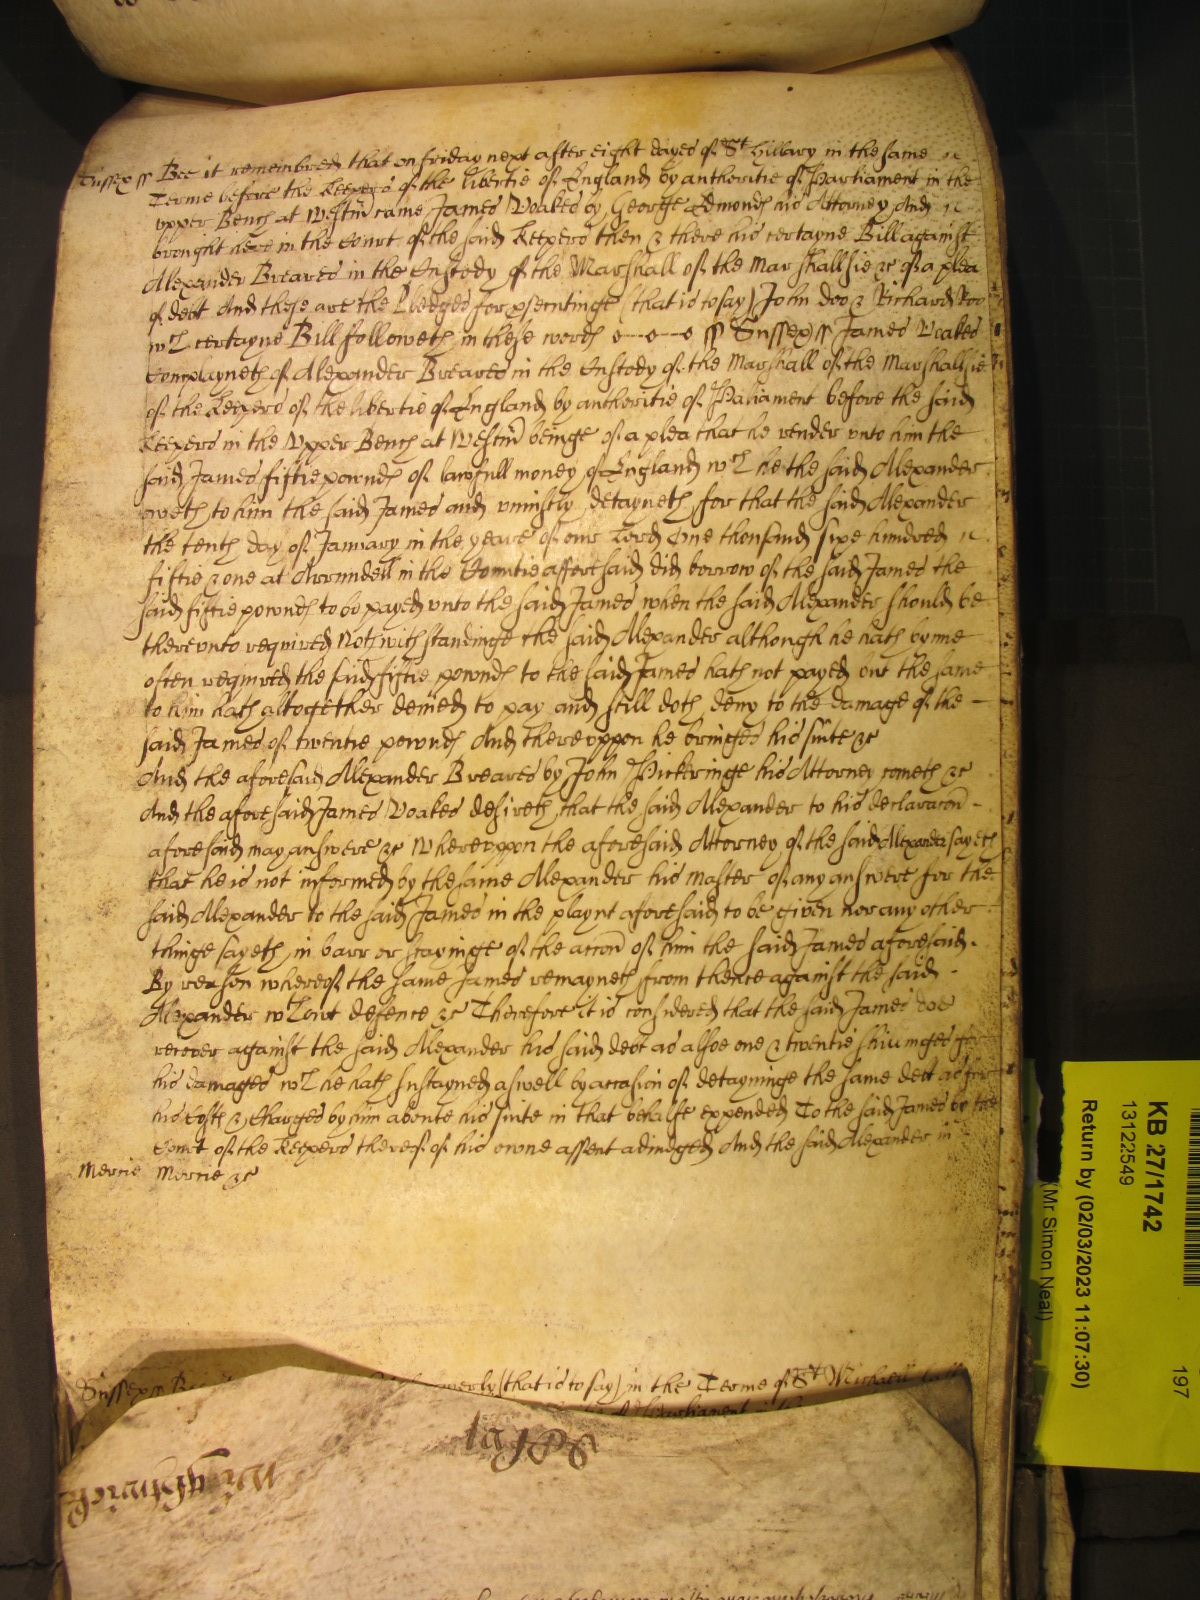 Sussex ss Bee it remembred that on friday next after eight dayes of St Hillary in the same
Terme before the Keepers of the libertie of England by authoritie of Parliament in the
upper Bench at Westm came James Voakes by George Edmonds his Attorney And
brought here in the Court of the said Keepers then & there his certayne Bill against
Alexander Breares in the Custody of the Marshall of the Marshallsie &c of a plea
of debt And these are the Pledges for psecutinge (that is to say) John doo & Richard Roo
wch certayne Bill followeth in these words o—o—o ss Sussex ss James Voakes
Complayneth of Alexander Breares in the Custody of the Marshall of the Marshallsie
of the Keepers of the libertie of England by authoritie of Parliament before the said
Keepers in the Upper Bench at Westm beinge of a plea that he render unto him the
said James fiftie pownds of lawfull money of England wch he the said Alexander
oweth to him the said James and uniustly detayneth for that the said Alexander
the tenth day of January in the yeare of our Lord One thousand sixe hundred
fiftie & one at Arrundell in the Countie afforesaid did borrow of the said James the
said fiftie pownds to be payed unto the said James when the said Alexander should be
thereunto required Notwithstandinge the said Alexander although he hath byme
often required the said fiftie pownds to the said James hath not payed but the same
to him hath altogether denied to pay and still doth deny to the damage of the —
said James of twentie pownds And thereuppon he bringes his suite &c
And the aforesaid Alexander Breares by John Pickeringe his Attorney cometh &c
And the aforesaid James Voakes desireth that the said Alexander to his declaracon -
aforesaid may answere &c Whereuppon the aforesaid Attorney of the said Alexander sayeth
that he is not informed by the same Alexander his Master of any answere for the
said Alexander to the said James in the playnt aforesaid to be given nor any other
thinge sayeth in barr or stayinge of the accon of him the said James aforesaid.
By reason whereof the same James remayneth from thence against the said -
Alexander wthout defence &c Therefore it is considered that the said James doe
recover against the said Alexander his said debt as alsoe one & twentie shillinges for
his damages wch he hath sustayned aswell by accasion of detayninge the same debt as for
his Costs & Charges by him aboute his suite in that behalfe expended To the said James by the
Court of the Keepers thereof of his owne assent adiudged And the said Alexander in
Mercie Mercie &c
Sussex ss (that is to say) in the Terme of St Michaell
KB 27/1742
13122549
Return by (02/03/2023 11:07:30)
(Mr Simon Neal)
197